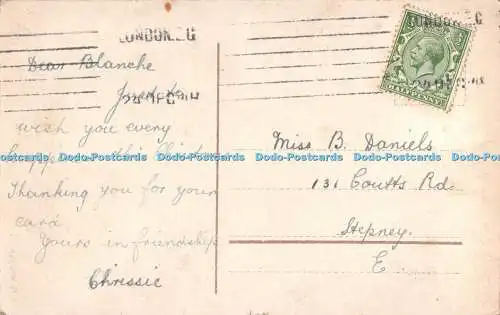 LONDON. E
Dear Blanche
Just to
wish you every
happiness this
Thanking you for your
card
Yours in friendship
Chrissie
LONDON. E
HALFPENNY
Miss B. Daniels
131 Coutts Rd.
Stepney.
E
Dodo-Postcards Dodo-Postcards Dodo-Postcards Dodo-Postcards Dodo-Postcards